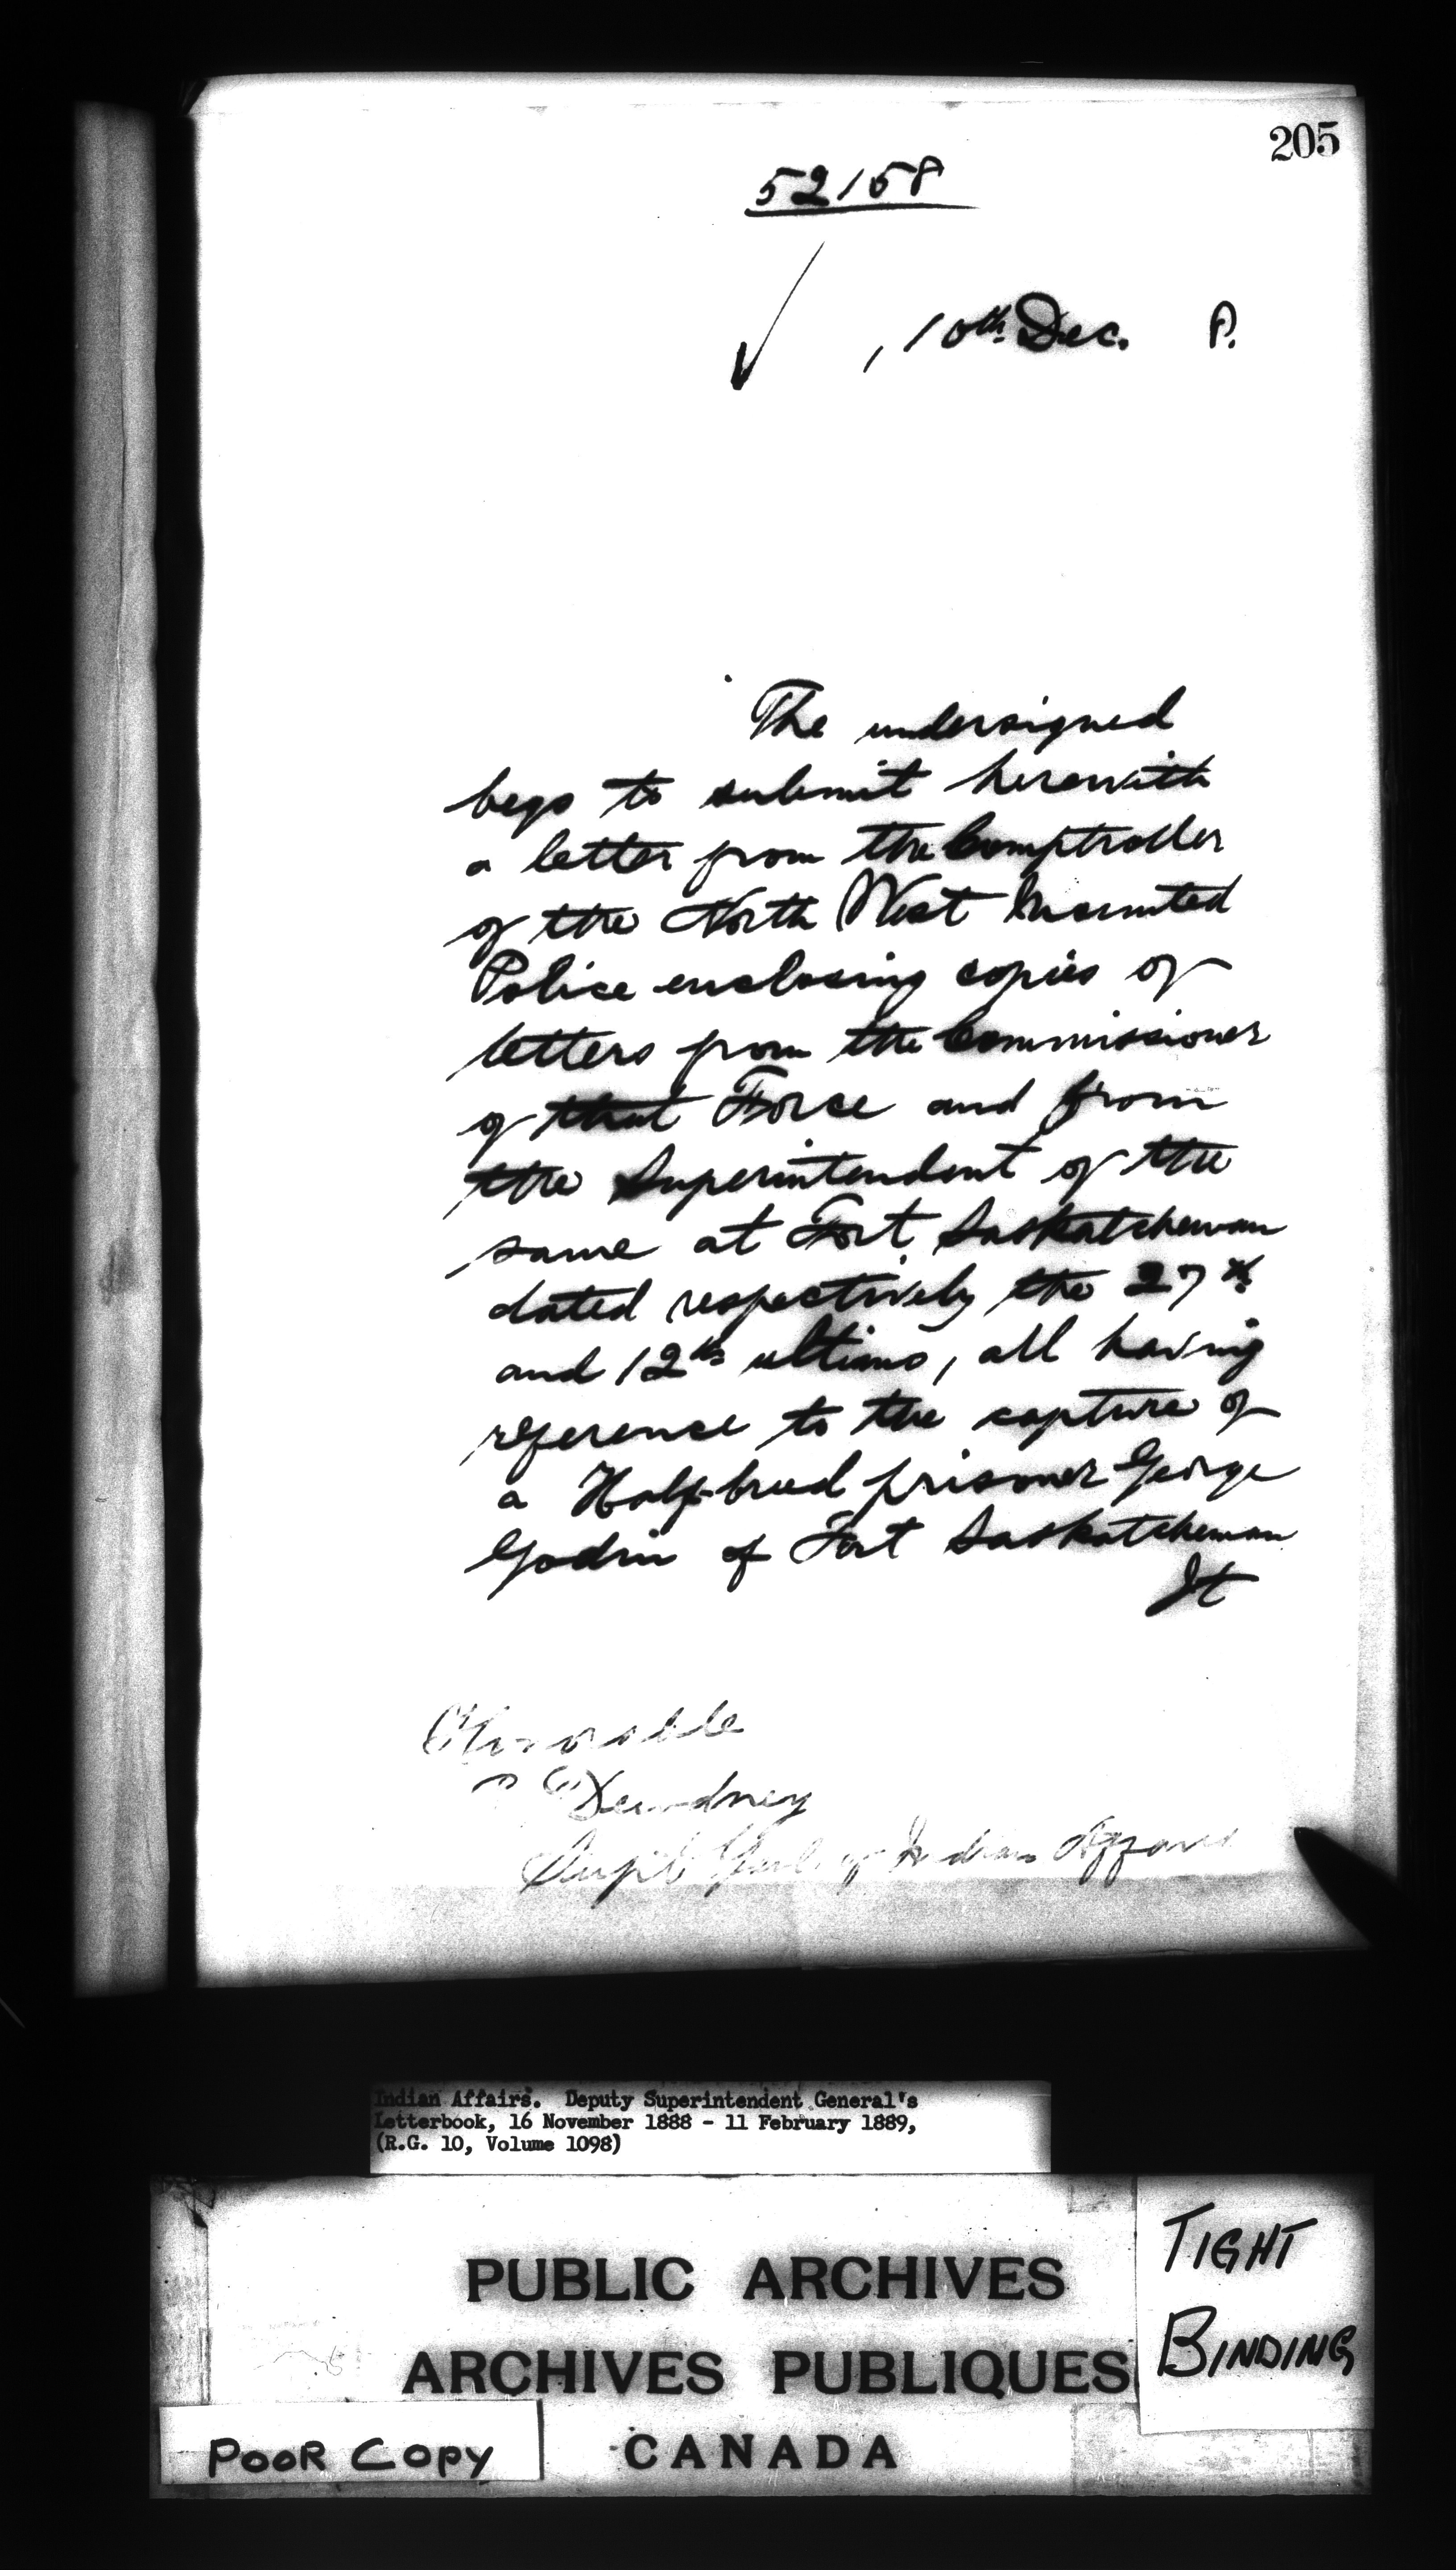 205
52158
, 10th Dec. 8.
The undersigned
begs to submit herewith
a letter from the Comptroller
of the North West Mounted
Police enclosing copies of
letters from the Commissioner
of that Force and from
the Superintendent of the
same at Fort Saskatchewan
dated respectively the 27th
and 12th ultimo, all having
reference to the capture of
a Half-breed prisoner George
Godin of Fort Saskatchewan
It
Honorable
Dewdney
Supt Genl of Indian Affairs
Indian Affairs. Deputy Superintendent General's
Letterbook, 16 November 1888 - 11 February 1889,
(R.G. 10, Volume 1098)
PUBLIC ARCHIVES
ARCHIVES PUBLIQUES
CANADA
TIGHT
BINDING
POOR COPY